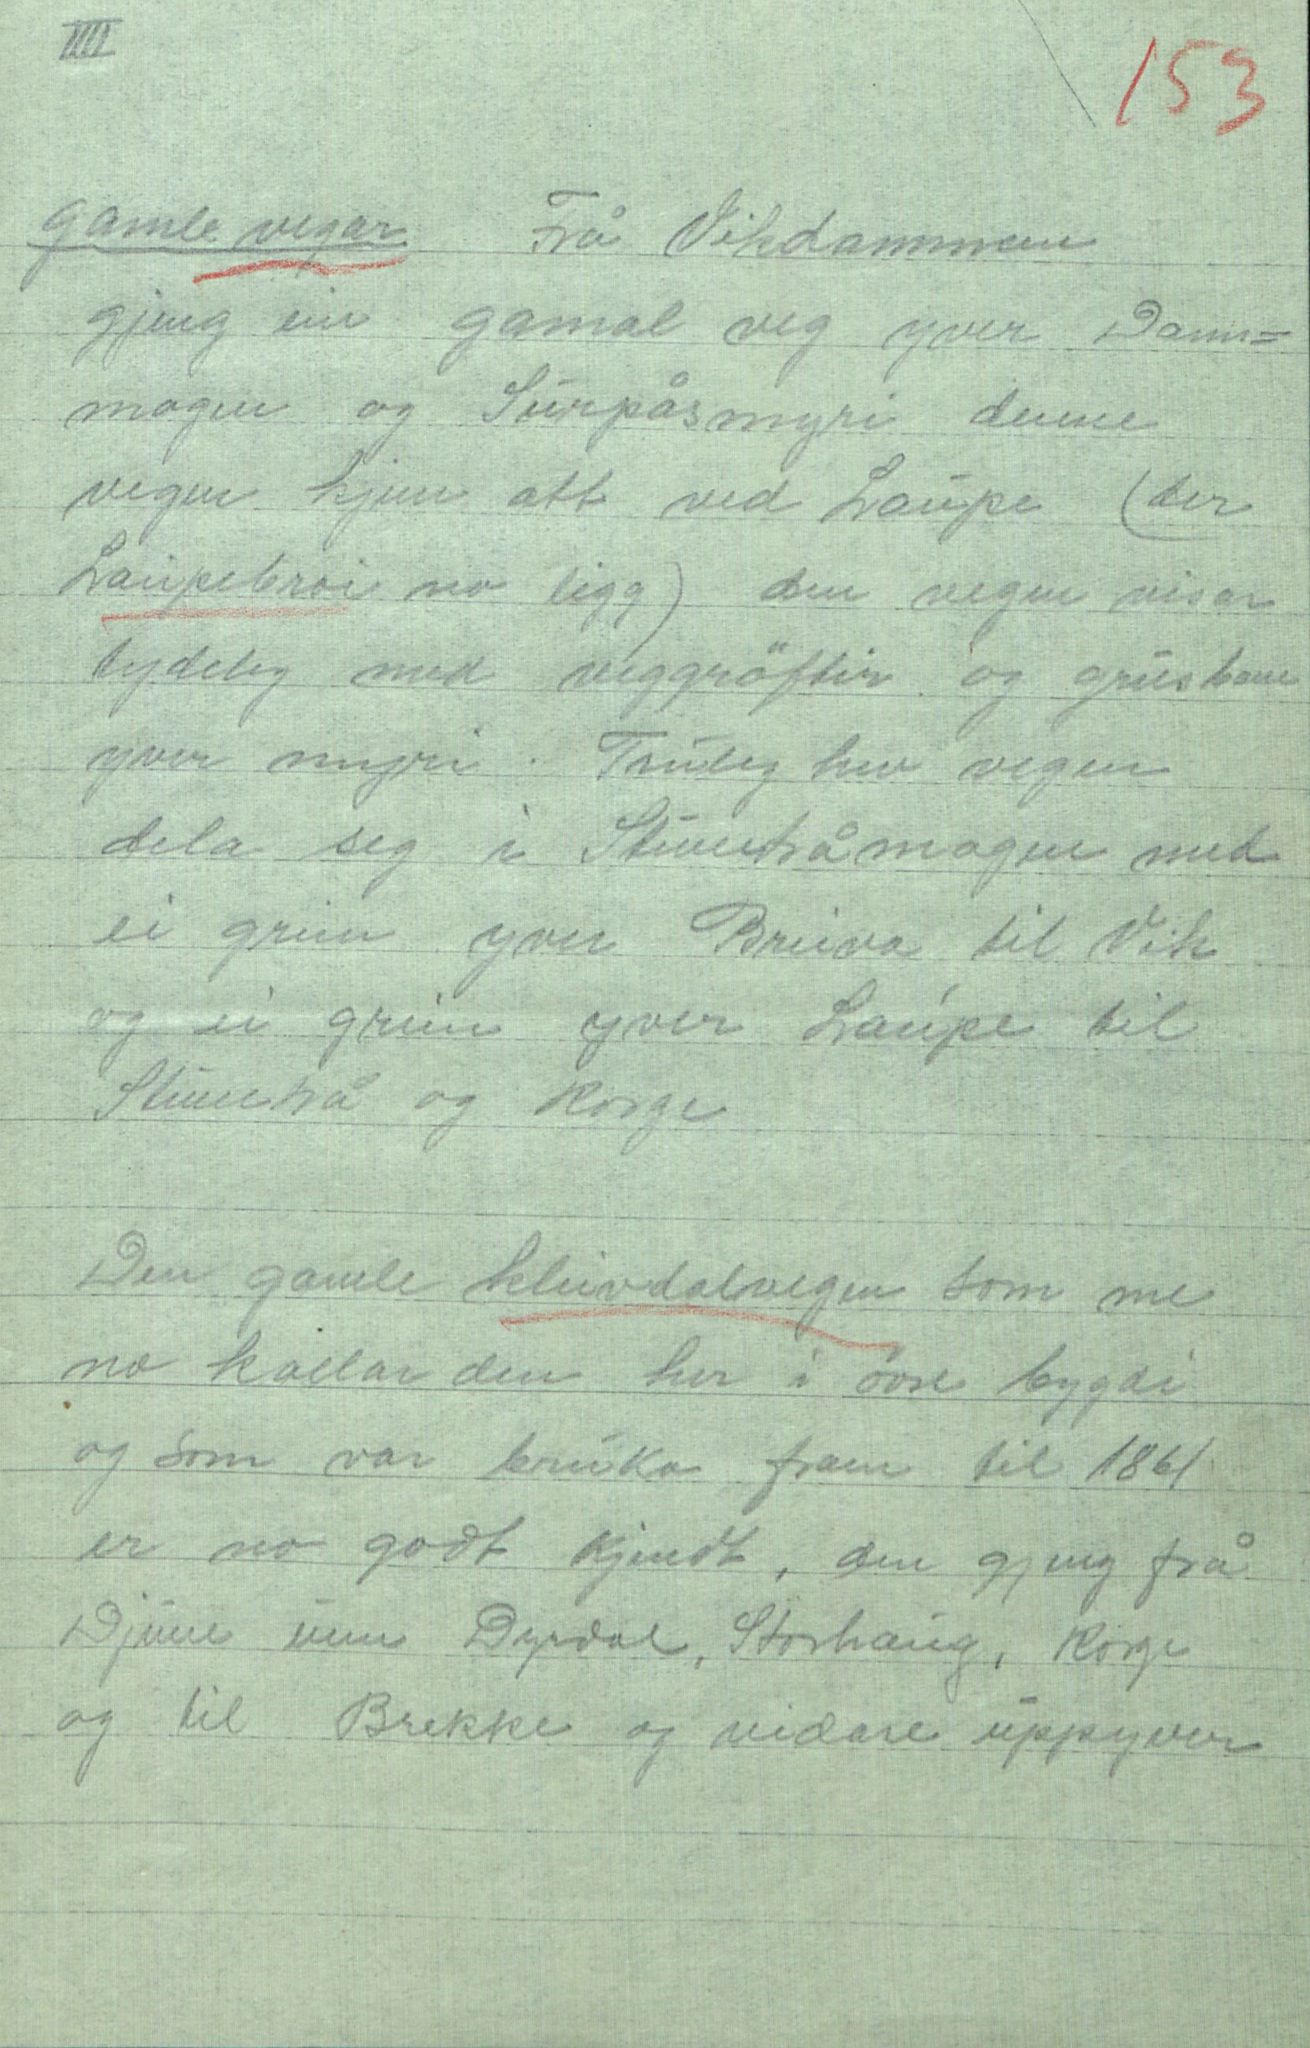 IIII
153
Gamle vegar Frå Vikdammen
gjeng ein gamal veg yver Dam=
mogen og Surpåsmyri denne
vegen kjem att ved Laupe (der
Laupebroi no ligg) den vegen visar
tydeleg med veggröfter og grusbane
yver myri. Truleg hev vegen
dela seg i Stuvetråmogen med
ei grein yver Bruva til Vik
og ei grein yver Laupe til
Stuvetrå og Korge
Den gamle kleivdalvegen som me
no kallar den her i övre bygdi
og som var bruka fram til 1861
er no godt kjendt, den gjeng frå
Djuve um Dyrdal, Storhaug, Korge
og til Brekke og vidare uppyver